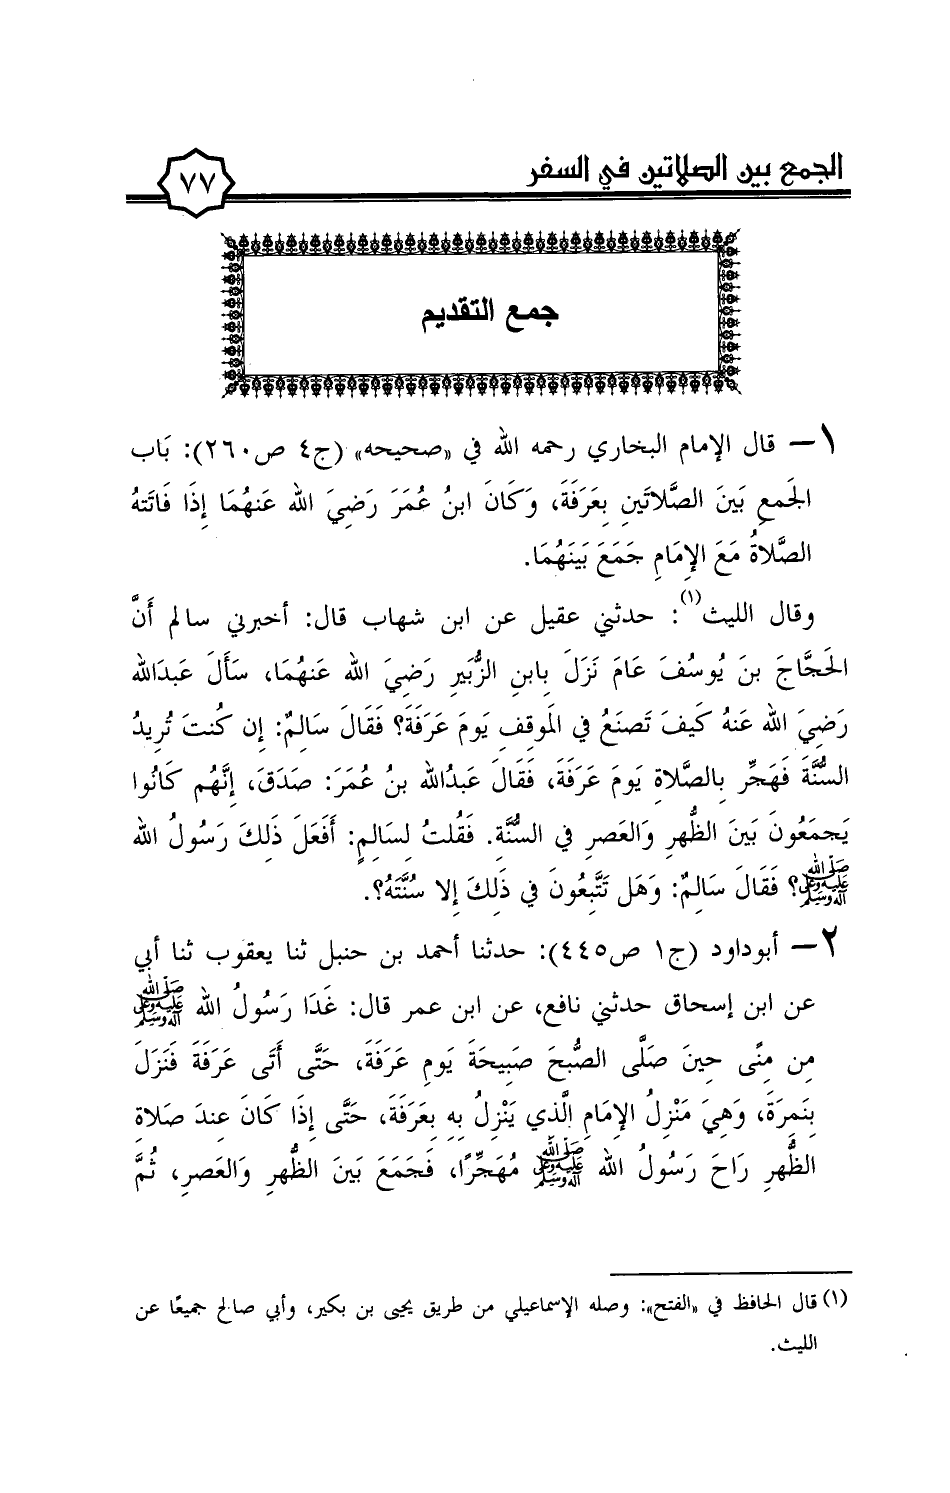 الجمع بين الصلاتين في السفر
٧٧
جمع التقديم
١- قال الإمام البخاري رحمه الله في «صحيحه» (ج٤ ص٢٦٠): بَاب
الجَمعِ بَينَ الصَّلاتَينِ بِعَرَفَةَ، وَكَانَ ابنُ عُمَرَ رَضِيَ الله عَنهُمَا إِذَا فَاتَتهُ
الصَّلاةُ مَعَ الإِمَامِ جَمَعَ بَينَهُمَا.
وقال الليث(١): حدثني عقيل عن ابن شهاب قال: أخبرني سالم أَنَّ
الحَجَّاجَ بنَ يُوسُفَ عَامَ نَزَلَ بِابنِ الزُّبَيرِ رَضِيَ الله عَنهُمَا، سَأَلَ عَبدَالله
رَضِيَ الله عَنهُ كَيفَ تَصنَعُ في المَوقِفِ يَومَ عَرَفَةَ؟ فَقَالَ سَالِمٌ: إِن كُنتَ تُرِيدُ
السُّنَّةَ فَهَجِّر بِالصَّلاةِ يَومَ عَرَفَةَ، فَقَالَ عَبدُالله بنُ عُمَرَ: صَدَقَ، إِنَّهُم كَانُوا
يَجمَعُونَ بَينَ الظُّهرِ وَالعَصرِ في السُّنَّةِ. فَقُلتُ لِسَالِمٍ: أَفَعَلَ ذَلِكَ رَسُولُ الله
صلى الله عليه وعلى آله وسلم؟ فَقَالَ سَالِمٌ: وَهَل تَتَّبِعُونَ في ذَلِكَ إِلا سُنَّتَهُ؟.
٢- أبوداود (ج١ ص٤٤٥): حدثنا أحمد بن حنبل ثنا يعقوب ثنا أبي
عن ابن إسحاق حدثني نافع، عن ابن عمر قال: غَدَا رَسُولُ الله صلى الله عليه وعلى آله وسلم
مِن مِنًى حِينَ صَلَّى الصُّبحَ صَبِيحَةَ يَومِ عَرَفَةَ، حَتَّى أَتَى عَرَفَةَ فَنَزَلَ
بِنَمِرَةَ، وَهِيَ مَنْزِلُ الإِمَامِ الَّذِي يَنْزِلُ بِهِ بِعَرَفَةَ، حَتَّى إِذَا كَانَ عِندَ صَلاةِ
الظُّهرِ رَاحَ رَسُولُ الله صلى الله عليه وعلى آله وسلم مُهَجِّرًا، فَجَمَعَ بَينَ الظُّهرِ وَالعَصرِ، ثُمَّ
(١) قال الحافظ في «الفتح»: وصله الإسماعيلي من طريق يحيى بن بكير، وأبي صالح جميعًا عن
الليث.